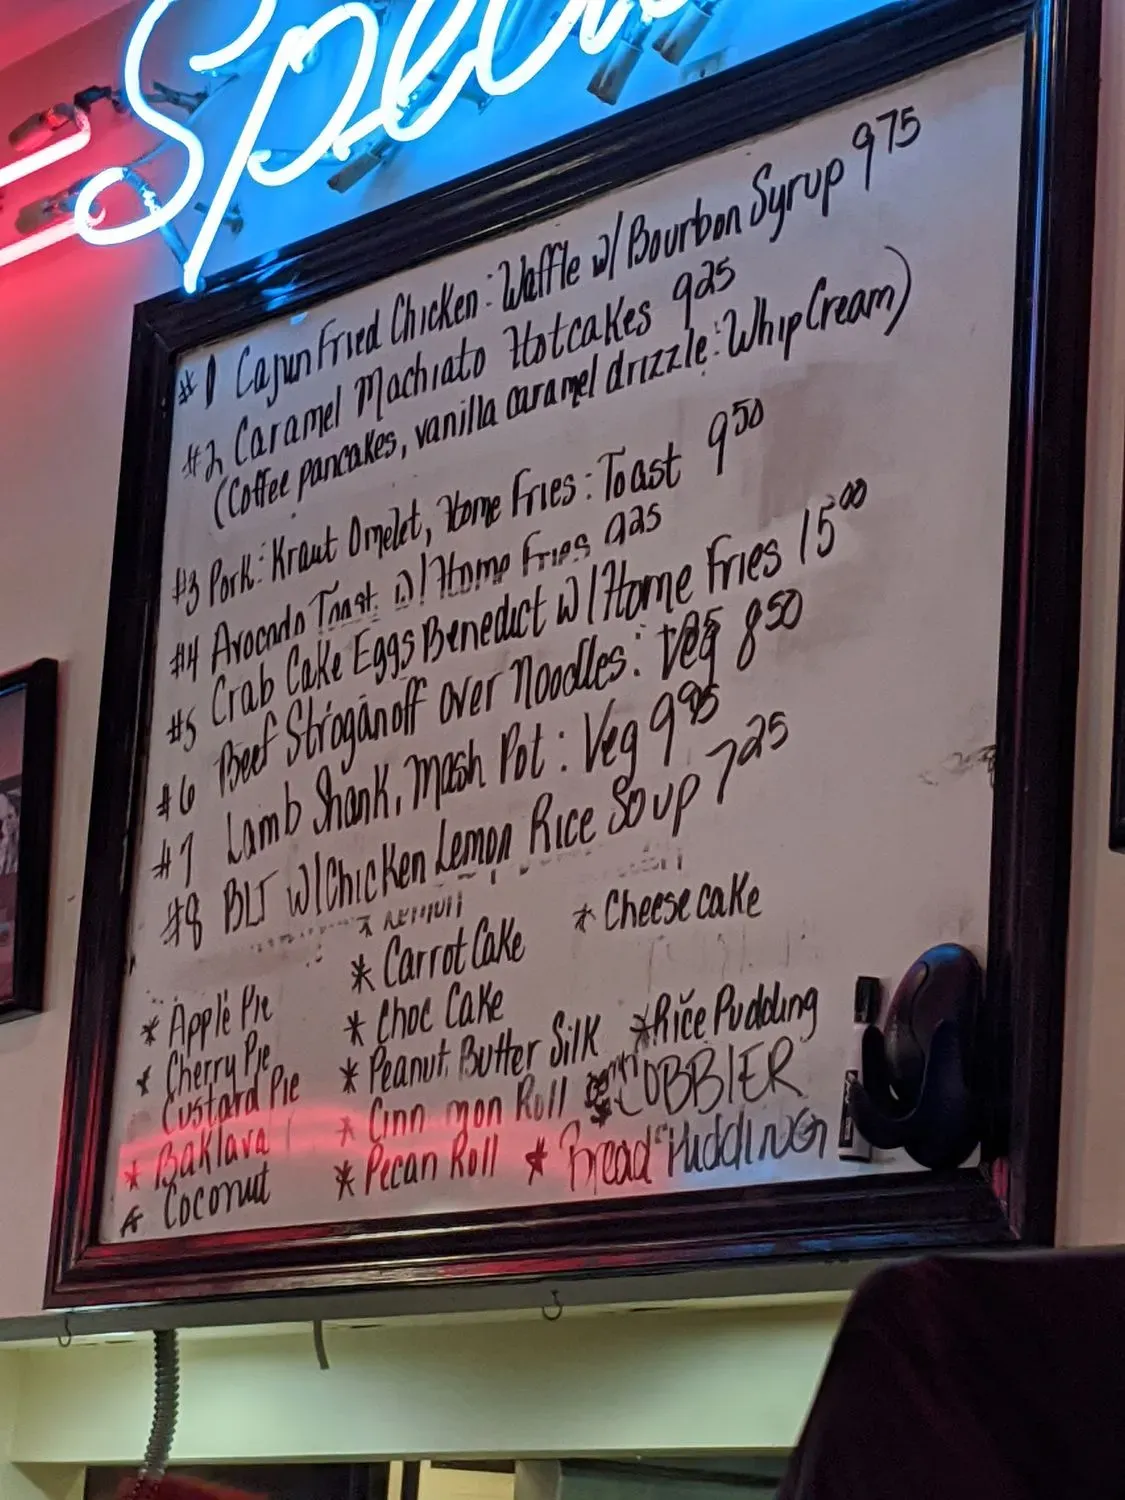 Speci
#1 Cajun Fried Chicken: Waffle w/ Bourbon Syrup 9 75
#2 Caramel Machiato Hotcakes 9 25
(Coffee pancakes, vanilla caramel drizzle: Whip Cream)
#3 Pork: Kraut Omelet, Home Fries: Toast 9 50
#4 Avocado Toast w/ Home Fries 9 25
#5 Crab Cake Eggs Benedict w/ Home Fries 15 00
#6 Beef Stroganoff over Noodles: Veg 8 50
#7 Lamb Shank, Mash Pot: Veg 9 95
#8 BLT w/ Chicken Lemon Rice Soup 7 25
* Cheese cake
* Carrot Cake
* Apple Pie
* Choc Cake
* Rice Pudding
* Cherry Pie
* Peanut Butter Silk
Custard Pie
COBBLER
* Cinn mon Roll
* Baklava
* Bread PuddiNG
* Pecan Roll
* Coconut